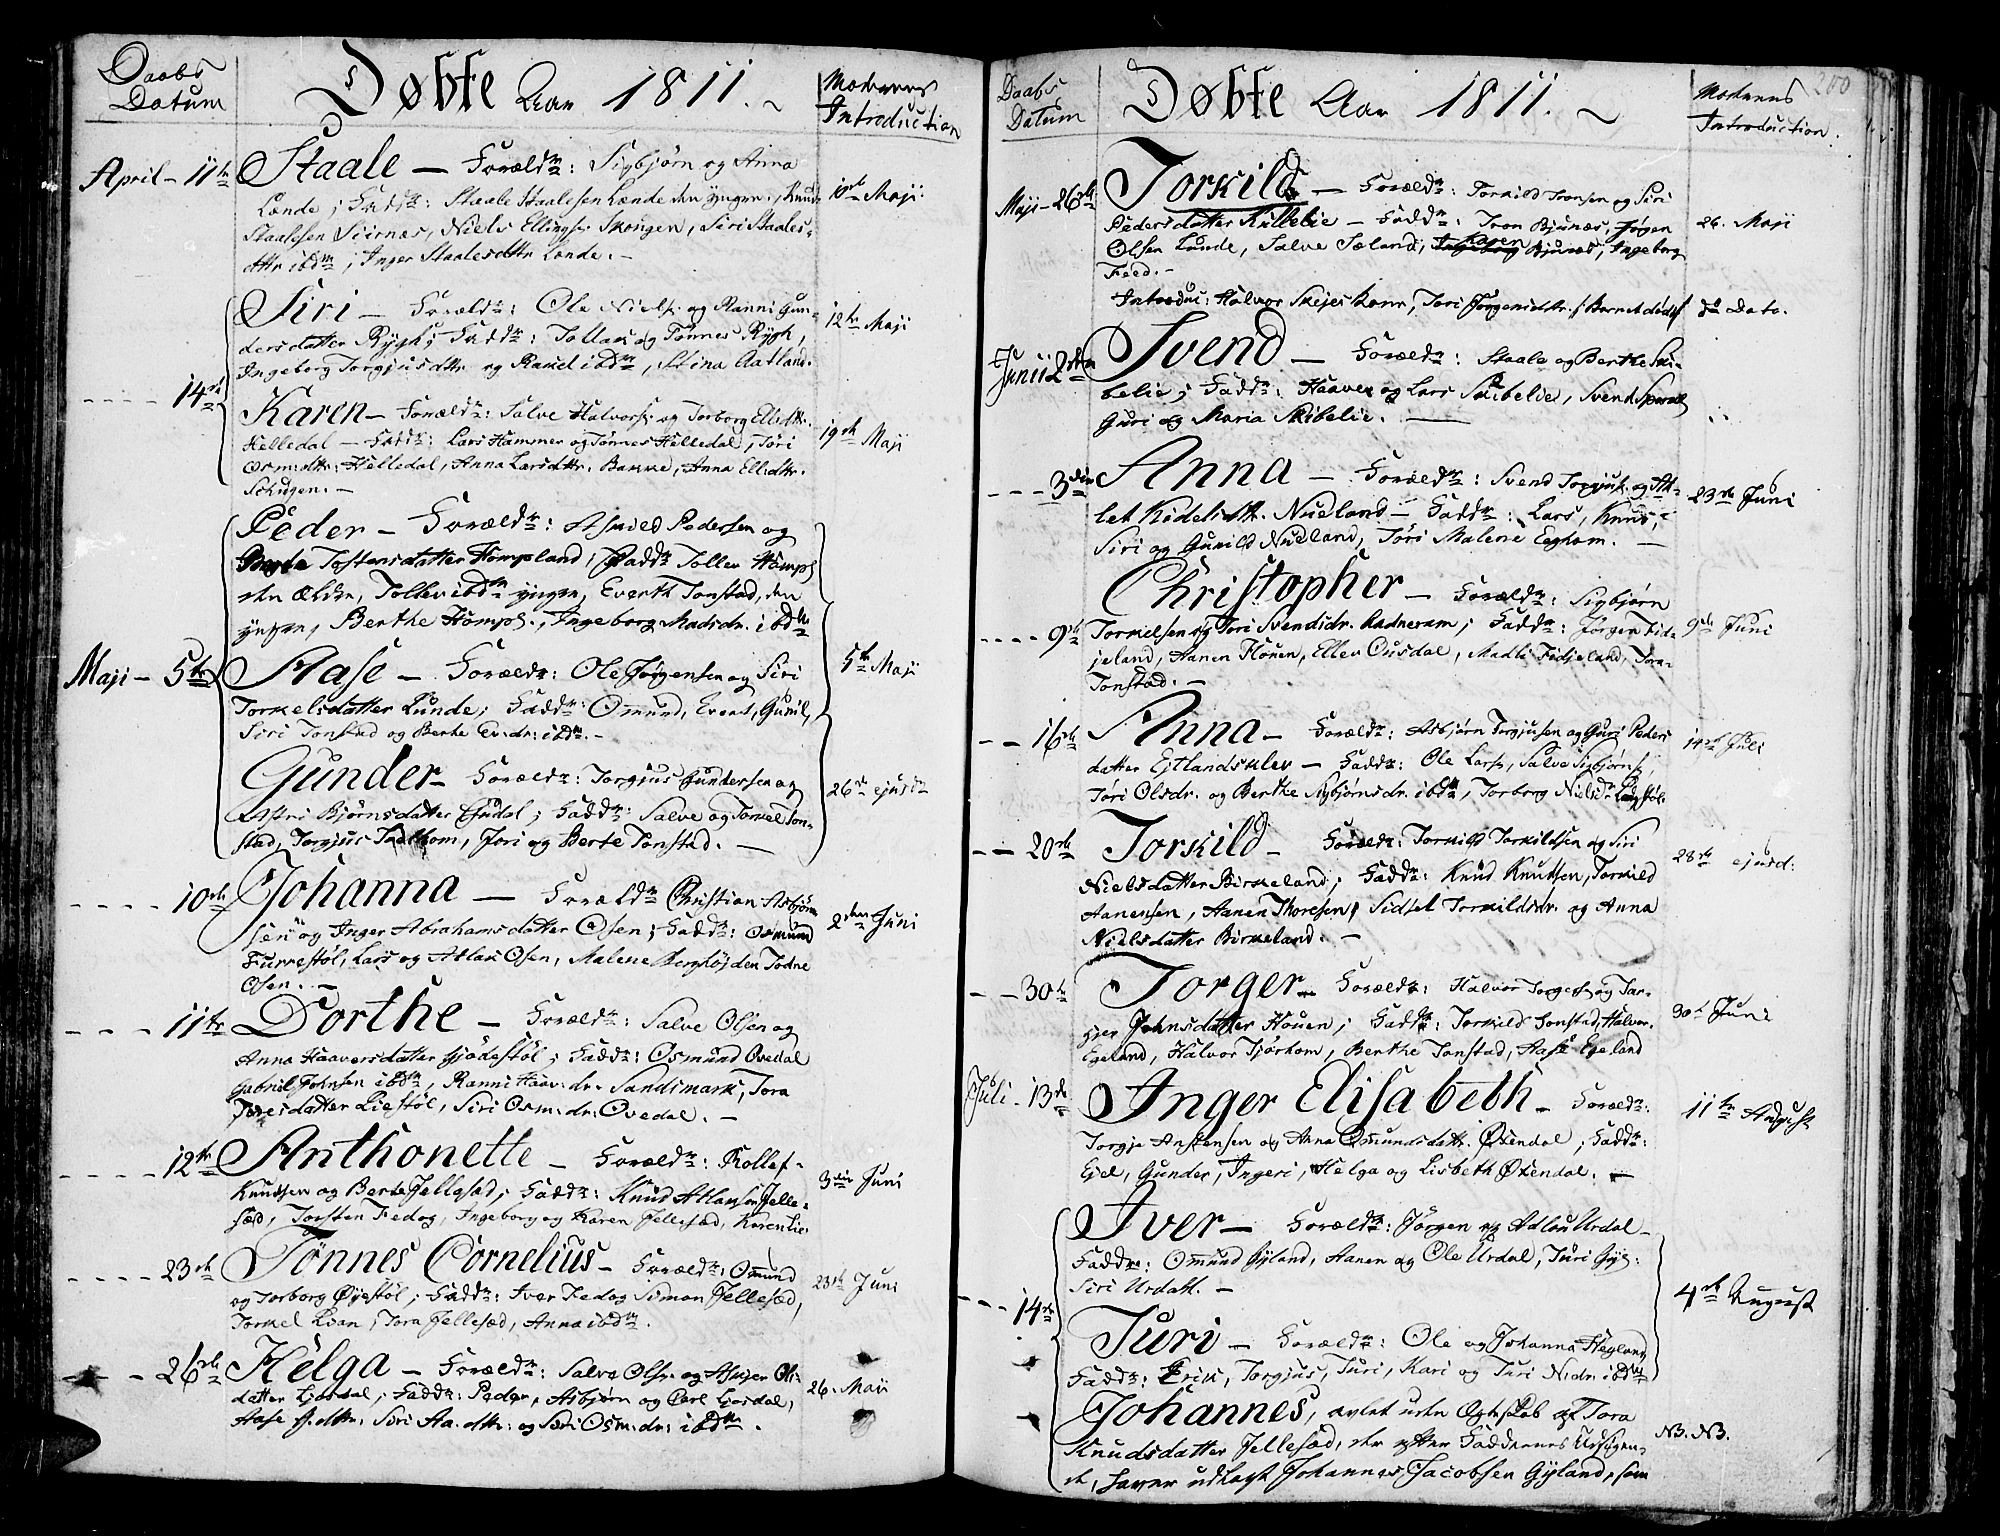 Daabs
Datum
Døbte Aar 1811. ~
Moderens
Introduction
April - 11te
Staale — Foræld: Sigbjørn og Anna
Lande; Fadd: Staale Staalesen Lande den yngre, Knud
Staalesen Siirnæs, Niels Ellingss. Skongen, Siri Staales-
dttr ibdm; Inger Staalesdttr Lande. —
10de Maji
Siri — Foræld: Ole Niels. og Ranni Gun-
dersdatter Rygh; Fadd: Tollak og Tønnes Rygh,
Ingeborg Torgjusdttr og Ranild ibdm, Stina Aatland.
12te Maji
14de
Karen — Foræld: Salve Halvors. og Torborg Ellidttr.
Helledal — Fadd: Lars Hammer og Tønnes Helledal, Tøri
Osm:dttr: Helledal, Anna Larsdttr. Bakke, Anna Ellidttr.
19de Maji
Peder — Foræld: Asmild Pedersen og
Tostensdatter Hompland; Fadd Tollev Homps
den Ældre, Tollev ibdm yngre, Everth Tonstad, den
yngre, Berthe Homps., Ingeborg Madsdr. ibdm
Maji - 5te
Aase — Foræld: Ole Jørgensen og Siri
Torkelsdatter Lunde; Fadd: Omund, Evert, Gunil,
Siri Tonstad og Berte Ev:dr: ibdm. —
5te Maji
Gunder — Foræld: Torgjus Gundersen og
Astri Bjørnsdatter; Fadd: Salve og Torkel Ton-
stad, Torgjus, Jori og Berte Tonstad. —
26de ejusd
10de
Johanna — Foræld Christian Asbjørn
sen og Inger Abrahamsdatter Osen; Fadd: Osmund
Furrestøl, Lars og Atlak Osen, Malene Todne
Osen. —
2den Juni
11te
Dorthe — Foræld: Salve Olsen og
Anna Haaversdatter Fjødestøl; Fadd: Osmund Ovedal
Gabriel Johnsen ibdm, Ranni Haav:dr. Sandsmark, Tora
Toresdatter Liestøl, Siri Osm:dr: Ovedal. —
12te
Anthonette — Foræld: Rollef
Knudsen og Berte Jellesæd; Fadd: Knud Atlaksen Jelle-
sæd, Torsten Fedog, Ingeborg og Karen Jellesæd, Karen Lie
3die Juni
23de
Tønnes Cornelius — Foræld: Omund
og Torborg Øyestøl; Fadd: Iver Fedog Simon Jellesæd,
Torkel Loan, Tora Jellesæd, Anna ibdm.
23de Juni
26de
Helga — Foræld: Salve Olss. og Asger Ols
datter Liordal; Fadd: Peder, Asbjørn og Carl Liordal,
Aase dttr, Siri Aa.dttr: og Siri Osm:dr: ibdm.
26. Maji
Daabs
Datum
Døbte Aar 1811. ~
Moderens
Introduction.
200
Maji - 26de
Torkild — Foræld: Torkild Tronsen og Siri
Pedersdatter Kullelie — Fadd: Tron Bjunæs, Jørgen
Olsen Lunde, Salve Sæland, Karen Bjunæs, Ingeborg
Feed. —
26. Maji
Introduc: Halvor Skejes Kone, Tori Jørgensdttr; Barnet død
do Dato.
Junii 2den
Svend — Foræld: Staale og Berthe Ski-
belie; Fadd: Haaver og Lars Skibelie, Svend
Guri og Maria Skibelie. —
3die
Anna — Foræld: Svend Torgjus. og At-
let Kidelsdttr. Nueland — Fadd: Lars, Knud,
Siri og Gunild Nueland, Tøri Malene Eeghom. —
23de Juni
9de
Christopher — Foræld: Sigbjørn
Torkelsen og Tori Svendsdr. Kadneram; Fadd: Jørgen Fid-
jeland, Aanen Houen, Ellev Ousdal, Madli Fidjeland, Tora
Tonstad. —
9de Juni
16de
Anna — Foræld: Asbjørn Torgjusen og Guri Peders
datter Ejtlandsklev — Fadd: Ole Lars., Salve Sigbjørns.,
Tøri Olsdr. og Berthe Sigbjørnsdr. ibdm, Torborg Nielsdr
14de Juli
20de
Torkild — Foræld: Torkild Torkildsen og Siri
Nielsdatter Birkeland; Fadd: Knud Knudsen, Torkild
Aanensen, Aanen Thoresen, Sidsel Torkildsdr. og Anna
Nielsdatter Birkeland. —
28de ejusd:
30te
Torger — Foræld: Halvor Torgers. og Tar-
gjer Johnsdatter Houen; Fadd: Torkild Tonstad, Halvor
Egeland, Halvor Tjørhom, Berthe Tonstad, Aase Egeland
30te Juni
Juli - 13de
Inger Elisabeth — Foræld:
Torgje Anstensen og Anna Osmundsdattr. Øxendal; Fadd:
Ejel, Gunder, Ingeri, Helga og Lisbeth Øxendal. —
11te August
14de
Iver — Foræld: Jørgen og Adlou Urdal —
Fadd: Omund Gyland, Aanen og Ole Urdal, Turi Gyl:
Siri Urdal. —
4de August
Turi — Foræld: Ole og Johanna Hegland
Fadd: Erik, Torgjus, Turi, Kari og Turi N:dr. ibdm
Johannes, avlet uden Ægteskab af Tora
Knudsdatter Jellesæd, der efter Faddernes Udsigen-
de, haver udlagt Johannes Jacobsen Gyland, som
NB. NB.